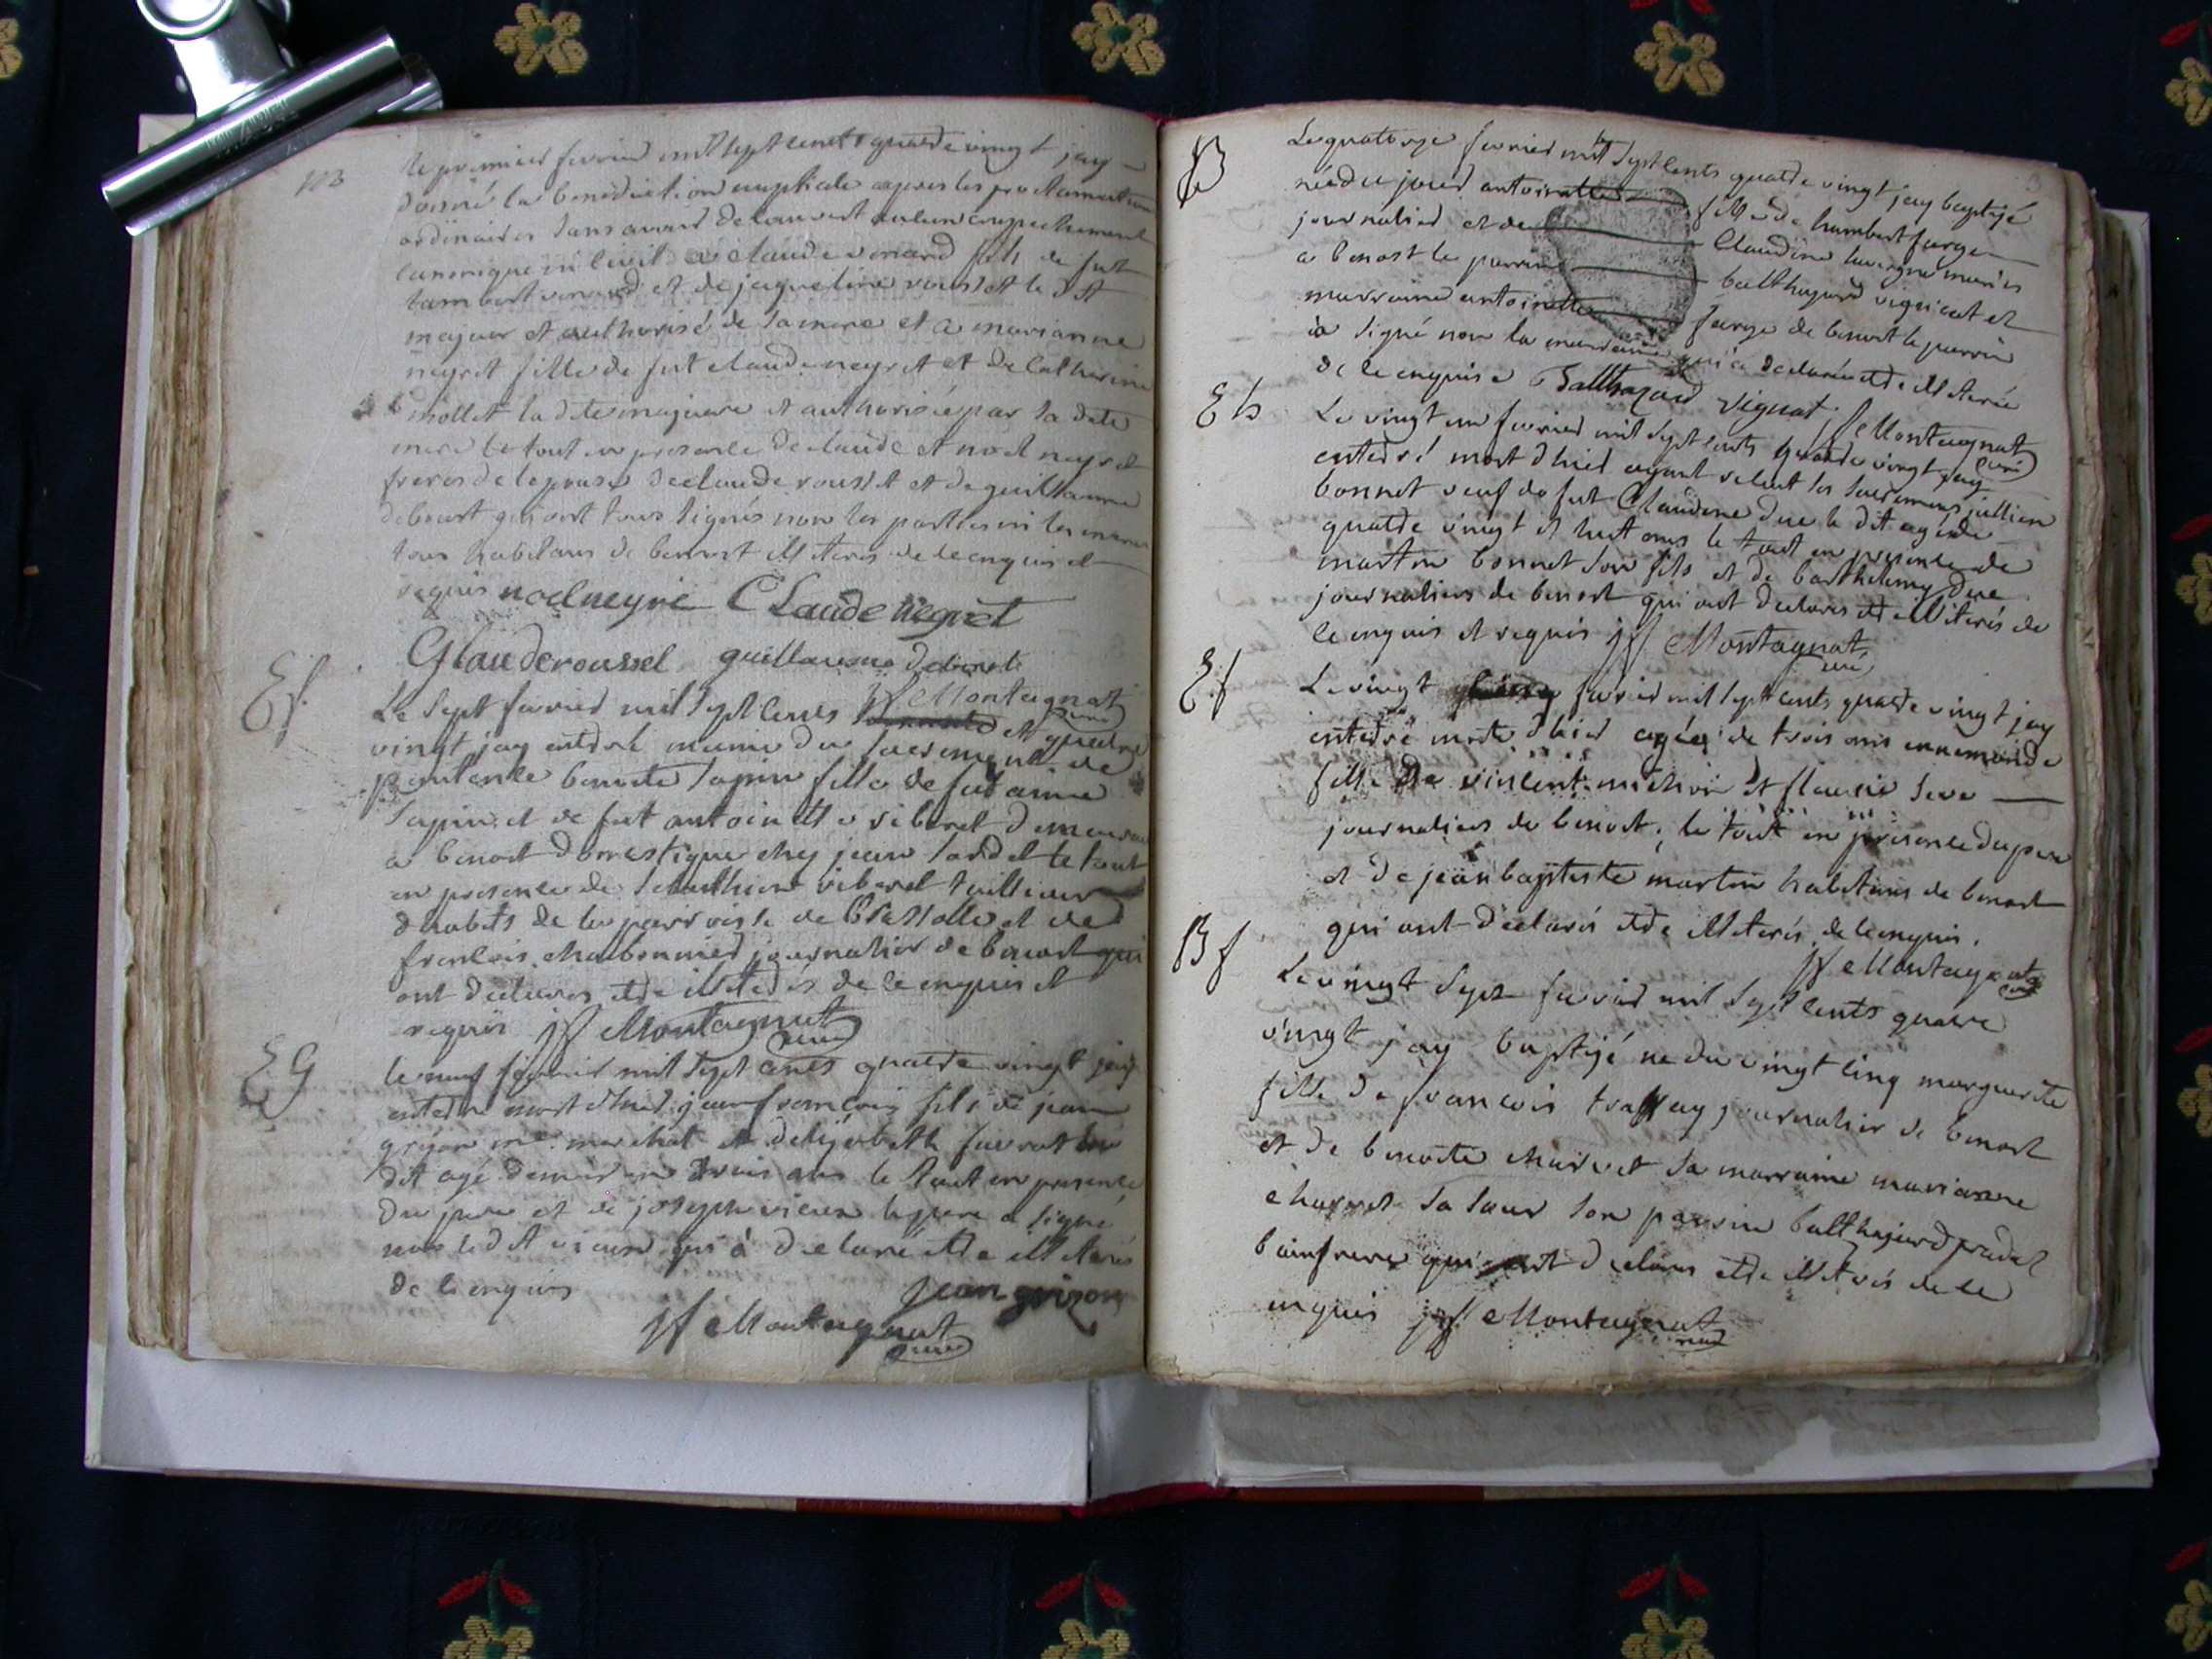 le premier fevrier mil sept cents quatre vingt jay
donné la benediction nuptiale apres les proclamations
ordinaires sans avoir decouvert aucun empechement
canonique ni civil a claude venard fils de fut
lambert venard et de jaqueline rousset le dit
majeur et authorisé de sa mere et a marianne
neyret fille de fut claude neyret et de catherine
mollet la dite majeure et authorisée par sa dite
mere le tout en presence de claude et noel neyret
freres de lepouse de claude rousset et de guillaume
debourt qui ont tous signés non les parties ni les meres
tous habitans de benost illiterés de ce enquis et
requis noel neyre Claude neyret
Glaude roussel guillaume
Ef
Le sept fevrier mil sept cents et quatre
jf Montagnat curé
vingt jay enterré munie du sacrement de
penitence benoite sapin fille de fut
sapin et de fut antoinette viberet demeurant
a benost domestique chez jean le tout
en presence de viberet tailleur
dhabits de la parroisse de et de
francois charbonnier journalier de benost qui
ont declarés etre illiterés de ce enquis et
requis jf Montagnat curé
EG
le neuf fevrier mil sept cents quatre vingt jay
enterré mort dhier jean francois fils de jean
grizon me marechal et delizabeth favrot le
dit agé denviron trois ans le tout en presence
du pere et de joseph vieux le pere a signé
non le dit vieux qui à declaré etre illiterés
de ce enquis jean grizon
jf Montagnat curé
B
Le quatorze fevrier mil sept cents quatre vingt jay baptizé
née du jour antoinette fille de humbert farge
journalier et de Claudine lavergne mariés
a benost le parrin balthazard vignat et
marraine antoinette farge de benost le parrin
à signé non la marraine qui a declaré etre illiterée
de ce enquise Balthazard vignat jf Montagnat curé
Eb
Le vingt un fevrier mil sept cents quatre vingt jay
enterré mort dhier ayant reçut les sacremens jullien
bonnet veuf de fut Claudine duc le dit agé de
quatre vingt et huit ans le tout en presence de
martin bonnet son fils et de barthelemy duc
journaliers de benost qui ont declarés etre illiterés de
ce enquis et requis jf Montagnat curé
Ef
Le vingt fevrier mil sept cents quatre vingt jay
enterré morte dhier agée de trois ans ennemonde
fille de vincent michon et
journaliers de benost, le tout en presence du pere
et de jean baptiste martin habitans de benost
qui ont declarés etre illiterés de ce enquis.
jf Montagnat curé
Bf
Le vingt sept fevrier mil sept cents quatre
vingt jay baptizé ne du vingt cinq marguerite
fille de francois traffay journalier de benost
et de benoite charvet sa marraine marianne
charvet sa sœur son parrin balthazard pradel
beaufrere qui ont declarés etre illiterés de ce
enquis jf Montagnat curé